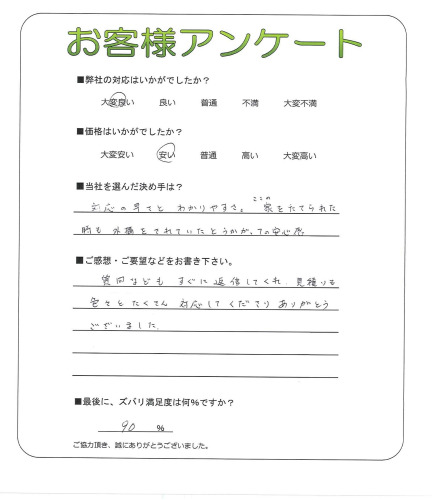 お客様アンケート
■弊社の対応はいかがでしたか？
大変良い 良い 普通 不満 大変不満
■価格はいかがでしたか？
大変安い 安い 普通 高い 大変高い
■当社を選んだ決め手は？
対応の早さと わかりやすさ。ここの 家をたてられた
時も 外構をされていたとうかがい、その安心感
■ご感想・ご要望などをお書き下さい。
質問なども すぐに返信してくれ、見積りも
色々とたくさん 対応してくださり ありがとう
ございました
■最後に、ズバリ満足度は何％ですか？
90 ％
ご協力頂き、誠にありがとうございました。